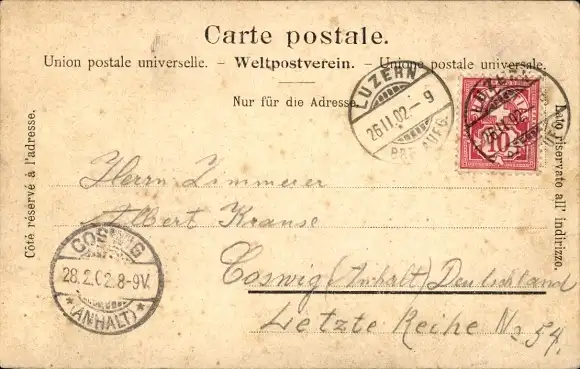 Carte postale.
Union postale universelle. – Weltpostverein. – Unione postale universale.
Nur für die Adresse.
Côté réservé à l'adresse.
Lato riservato all' indirizzo.
LUZERN
26.II.02.–9
BRF. AUFG.
LUZERN
26.II.02.
10
Herrn Zimmerer
Albert Krause
Coswig (Anhalt) Deutschland
Letzte Reihe No 54.
COSWIG
28.2.02.8-9V.
*(ANHALT)*